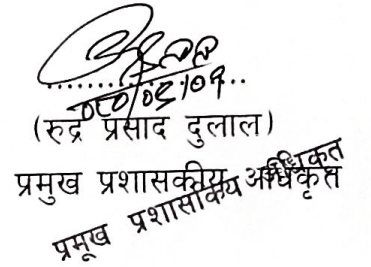 (रुद्र प्रसाद दुलाल)
प्रमुख प्रशासकीय अधिकृत
प्रमूख प्रशासकिय अधिकृत